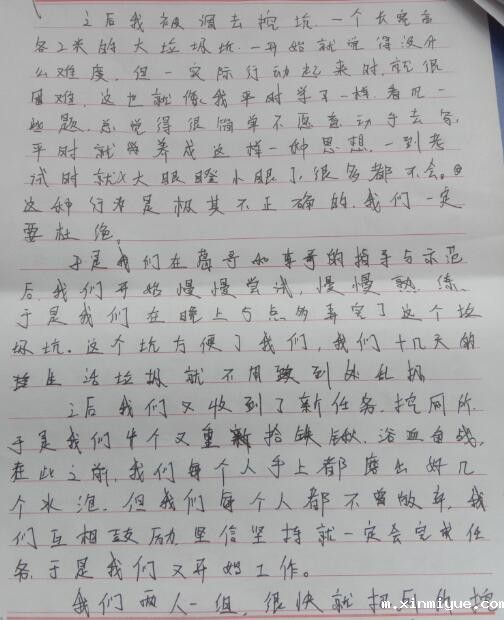 之后我被调去挖坑,一个长宽高
各2米的大垃圾坑.一开始就觉得没什
么难度,但一实际行动起来时,就很
困难,这也就像我平时学习一样,看见一
些题,总觉得很简单不愿意动手去写,
平时就养成这样一种思想,一到考
试时就大眼瞪小眼了,很多都不会。
这种行为是极其不正确的,我们一定
要杜绝。
于是我们在哥和哥的指导与示范
后,我们开始慢慢尝试,慢慢熟练、
于是我们在晚上5点多弄完了这个垃
圾坑.这个坑方便了我们,我们十几天的
生活垃圾就不用到处乱扔
之后我们又收到了新任务,挖厕所,
于是我们4个又重新拾铁锹,浴血奋战,
在此之前,我们每个人手上都磨出好几
个水泡.但我们每个人都不曾放弃,我
们互相鼓励,坚信坚持就一定会完成任
务,于是我们又开始工作。
我们两人一组,很快就把厕所挖
m.xinmiyue.com